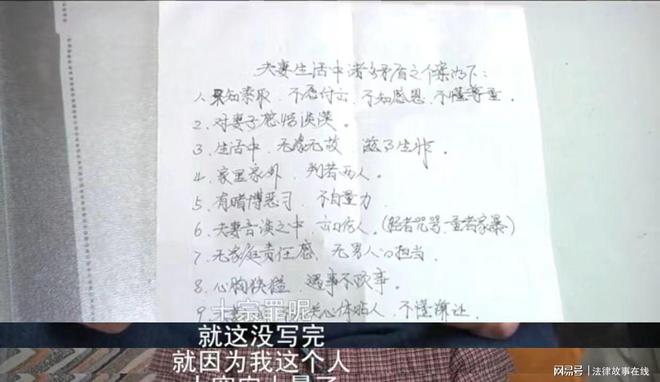 夫妻生活中诸多矛盾之个案如下：
1. 只知索取、不愿付出、不知感恩、不懂尊重。
2. 对妻子感情淡漠。
3. 生活中、无缘无故、滋事生非。
4. 家里家外、判若两人。
5. 有赌博恶习、不自量力。
6. 夫妻言谈之中、出口伤人。（轻者咒骂、重者家暴）
7. 无家庭责任感、无男人的担当。
8. 心胸狭隘、遇事不
9. 关心体贴人、不懂谦让
十宗罪呢
就这没写完
就因为我这个人
网易号 | 法律故事在线